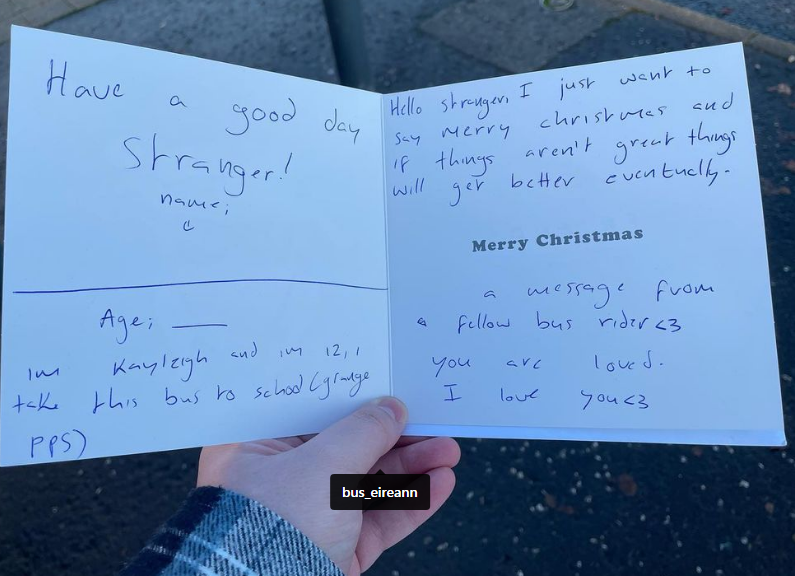 Have a good day
Stranger!
name;
c
Age; ____
im Kayleigh and im 12, i
take this bus to school (grange
PPS)
Hello stranger, I just want to
say merry christmas and
if things aren't great things
will get better eventually.
Merry Christmas
a message from
a fellow bus rider <3
you are loved.
I love you <3
bus_eireann